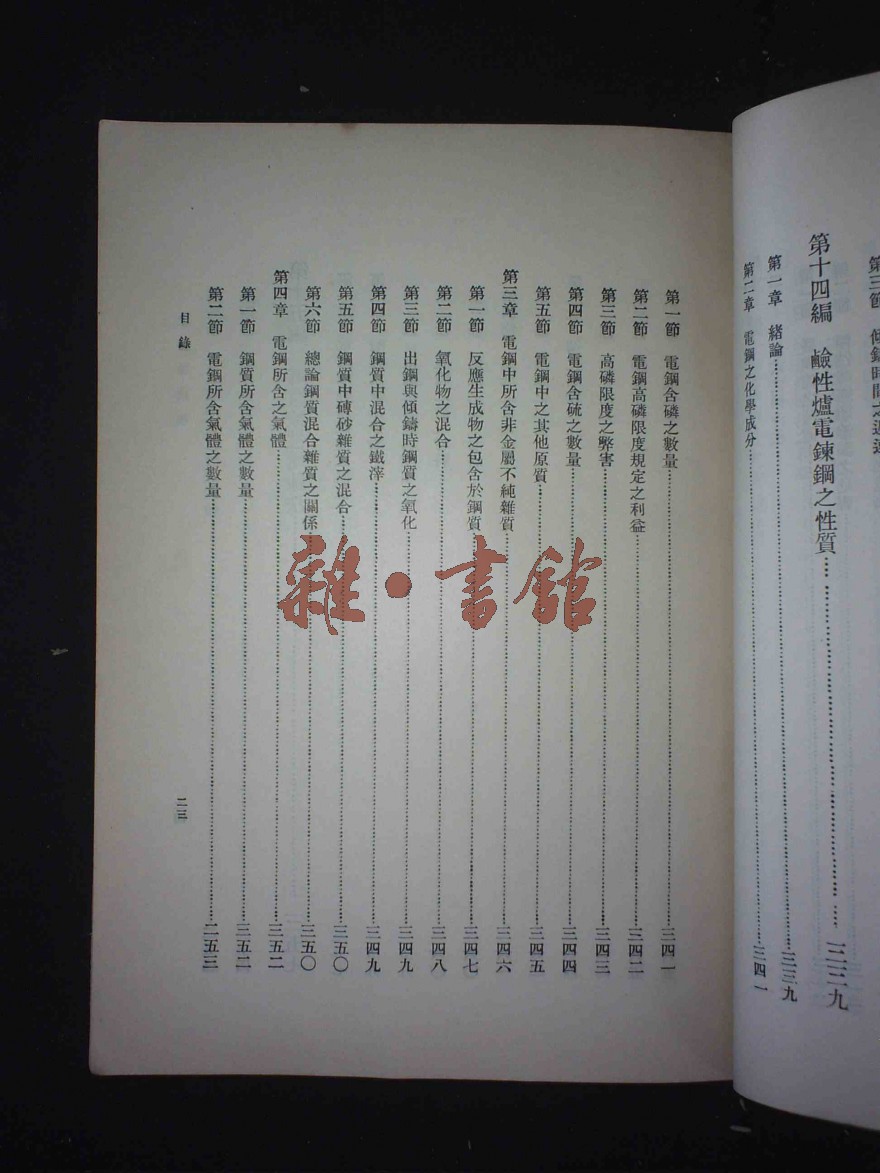 第三節 傾鑄時間之遲速
第十四編 鹼性爐電鍊鋼之性質 三三九
第一章 緒論 三三九
第二章 電鋼之化學成分 三四一
第一節 電鋼含磷之數量 三四一
第二節 電鋼高磷限度規定之利益 三四二
第三節 高磷限度之弊害 三四三
第四節 電鋼含硫之數量 三四四
第五節 電鋼中之其他原質 三四五
第三章 電鋼中所含非金屬不純雜質 三四六
第一節 反應生成物之包含於鋼質 三四七
第二節 氧化物之混合 三四八
第三節 出鋼與傾鑄時鋼質之氧化 三四九
第四節 鋼質中混合之鐵滓 三四九
第五節 鋼質中磚砂雜質之混合 三五〇
第六節 總論鋼質混合雜質之關係 三五〇
第四章 電鋼所含之氣體 三五二
第一節 鋼質所含氣體之數量 三五二
第二節 電鋼所含氣體之數量 二五三
目錄
二三
雜·書館